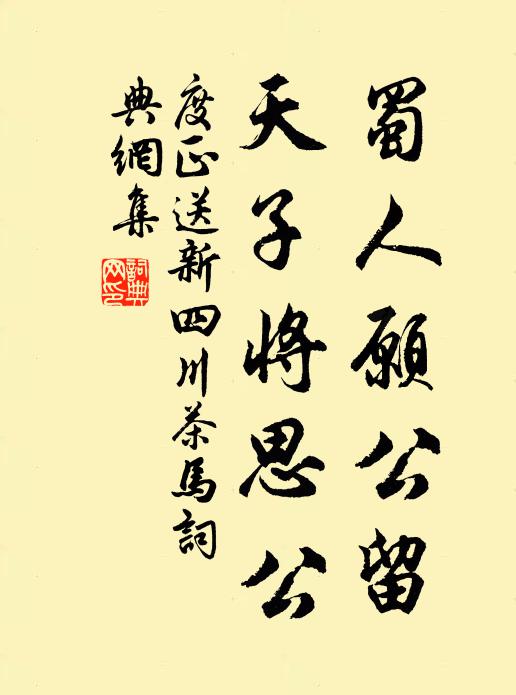 蜀人願公留
天子將思公
度正送新四川茶馬詞
典網集
詞典
网印